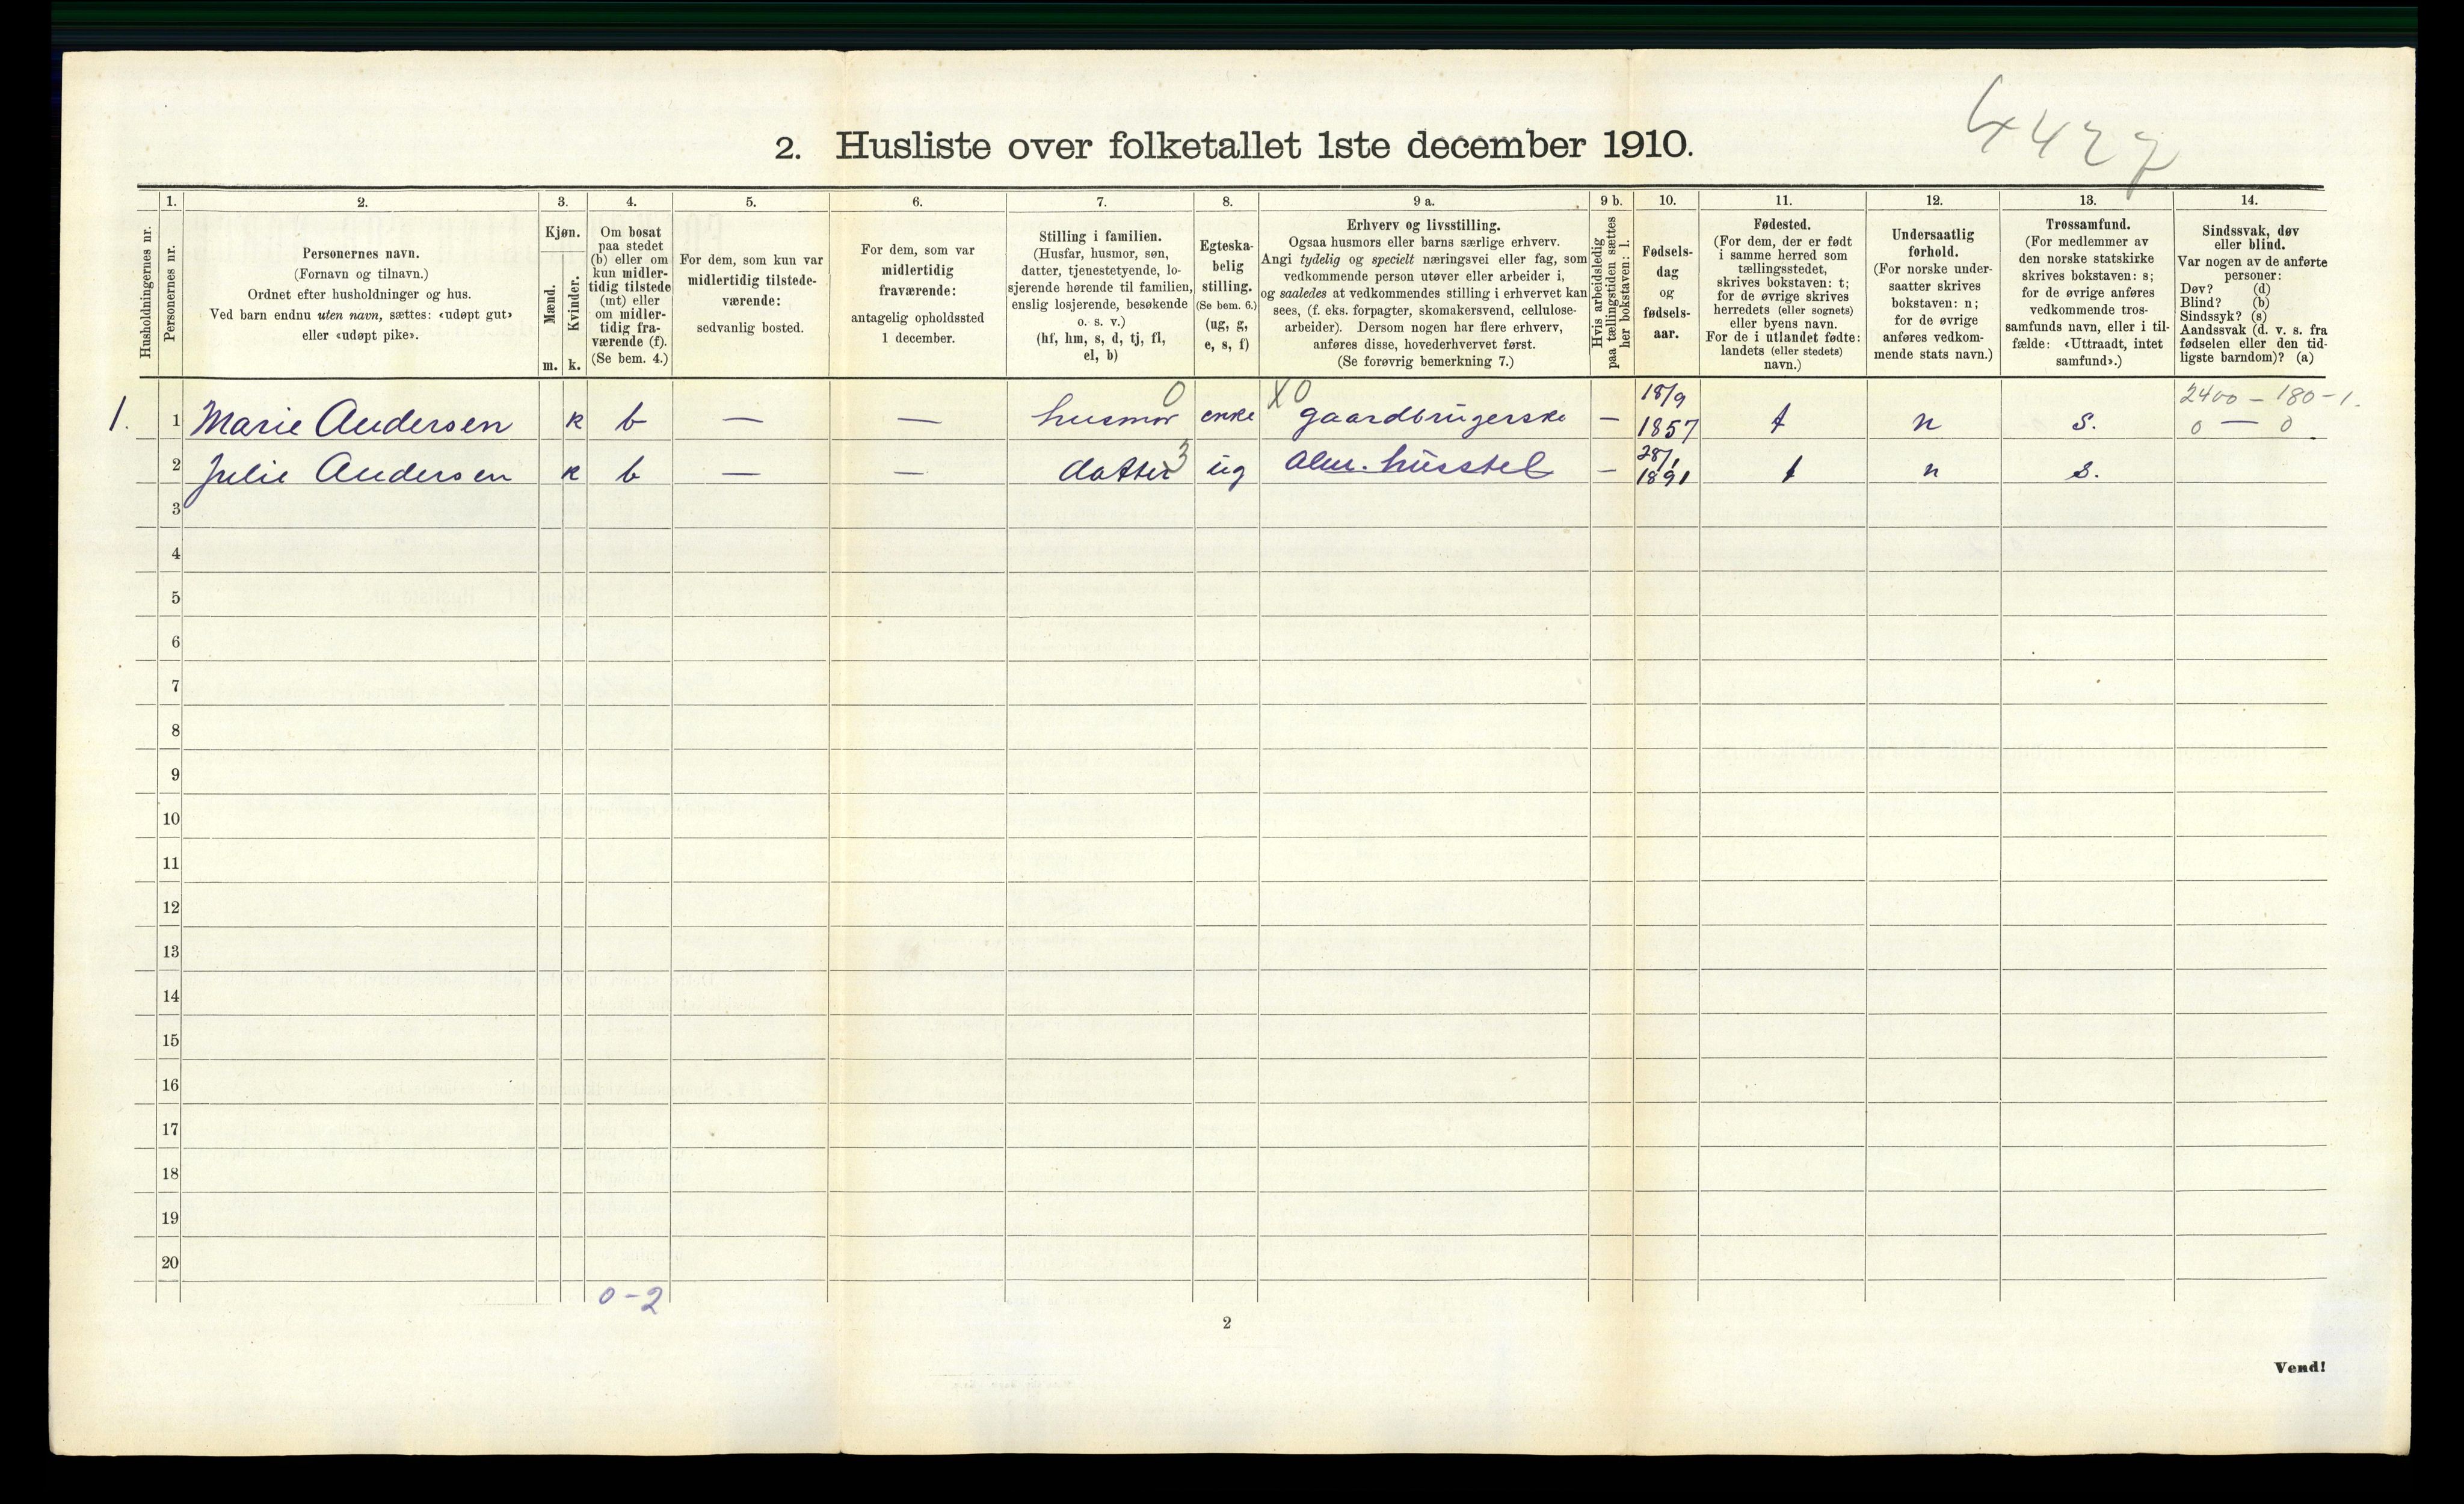 4427
2. Husliste over folketallet 1ste december 1910.
Husholdningernes nr.
1.
Personernes nr.
2.
Personernes navn.
(Fornavn og tilnavn.)
Ordnet efter husholdninger og hus.
Ved barn endnu uten navn, sættes: «udøpt gut»
eller «udøpt pike».
3.
Kjøn.
Mænd.
Kvinder.
m. k.
4.
Om bosat
paa stedet
(b) eller om
kun midler-
tidig tilstede
(mt) eller
om midler-
tidig fra-
værende (f).
(Se bem. 4.)
5.
For dem, som kun var
midlertidig tilstede-
værende:
sedvanlig bosted.
6.
For dem, som var
midlertidig
fraværende:
antagelig opholdssted
1 december.
7.
Stilling i familien.
(Husfar, husmor, søn,
datter, tjenestetyende, lo-
sjerende hørende til familien,
enslig losjerende, besøkende
o. s. v.)
(hf, hm, s, d, tj, fl,
el, b)
8.
Egteska-
belig
stilling.
(Se bem. 6.)
(ug, g,
e, s, f)
9 a.
Erhverv og livsstilling.
Ogsaa husmors eller barns særlige erhverv.
Angi tydelig og specielt næringsvei eller fag, som
vedkommende person utøver eller arbeider i,
og saaledes at vedkommendes stilling i erhvervet kan
sees, (f. eks. forpagter, skomakersvend, cellulose-
arbeider). Dersom nogen har flere erhverv,
anføres disse, hovederhvervet først.
(Se forøvrig bemerkning 7.)
9 b.
Hvis arbeidsledig
paa tællingstiden sættes
her bokstaven: l.
10.
Fødsels-
dag
og
fødsels-
aar.
11.
Fødested.
(For dem, der er født
i samme herred som
tællingsstedet,
skrives bokstaven: t;
for de øvrige skrives
herredets (eller sognets)
eller byens navn.
For de i utlandet fødte:
landets (eller stedets)
navn.)
12.
Undersaatlig
forhold.
(For norske under-
saatter skrives
bokstaven: n;
for de øvrige
anføres vedkom-
mende stats navn.)
13.
Trossamfund.
(For medlemmer av
den norske statskirke
skrives bokstaven: s;
for de øvrige anføres
vedkommende tros-
samfunds navn, eller i til-
fælde: «Uttraadt, intet
samfund».)
14.
Sindssvak, døv
eller blind.
Var nogen av de anførte
personer:
Døv? (d)
Blind? (b)
Sindssyk? (s)
Aandssvak (d. v. s. fra
fødselen eller den tid-
ligste barndom)? (a)
0 X0 18/9 2400 - 180 - 1.
1. 1 Marie Andersen k b — — husmor enke gaardbrugerske — 1857 t n s. 0 — 0
3 28/1
2 Julie Andersen k b — — datter ug Alm. husstel — 1891 t n s.
3
4
5
6
7
8
9
10
11
12
13
14
15
16
17
18
19
20
0-2
2
Vend!